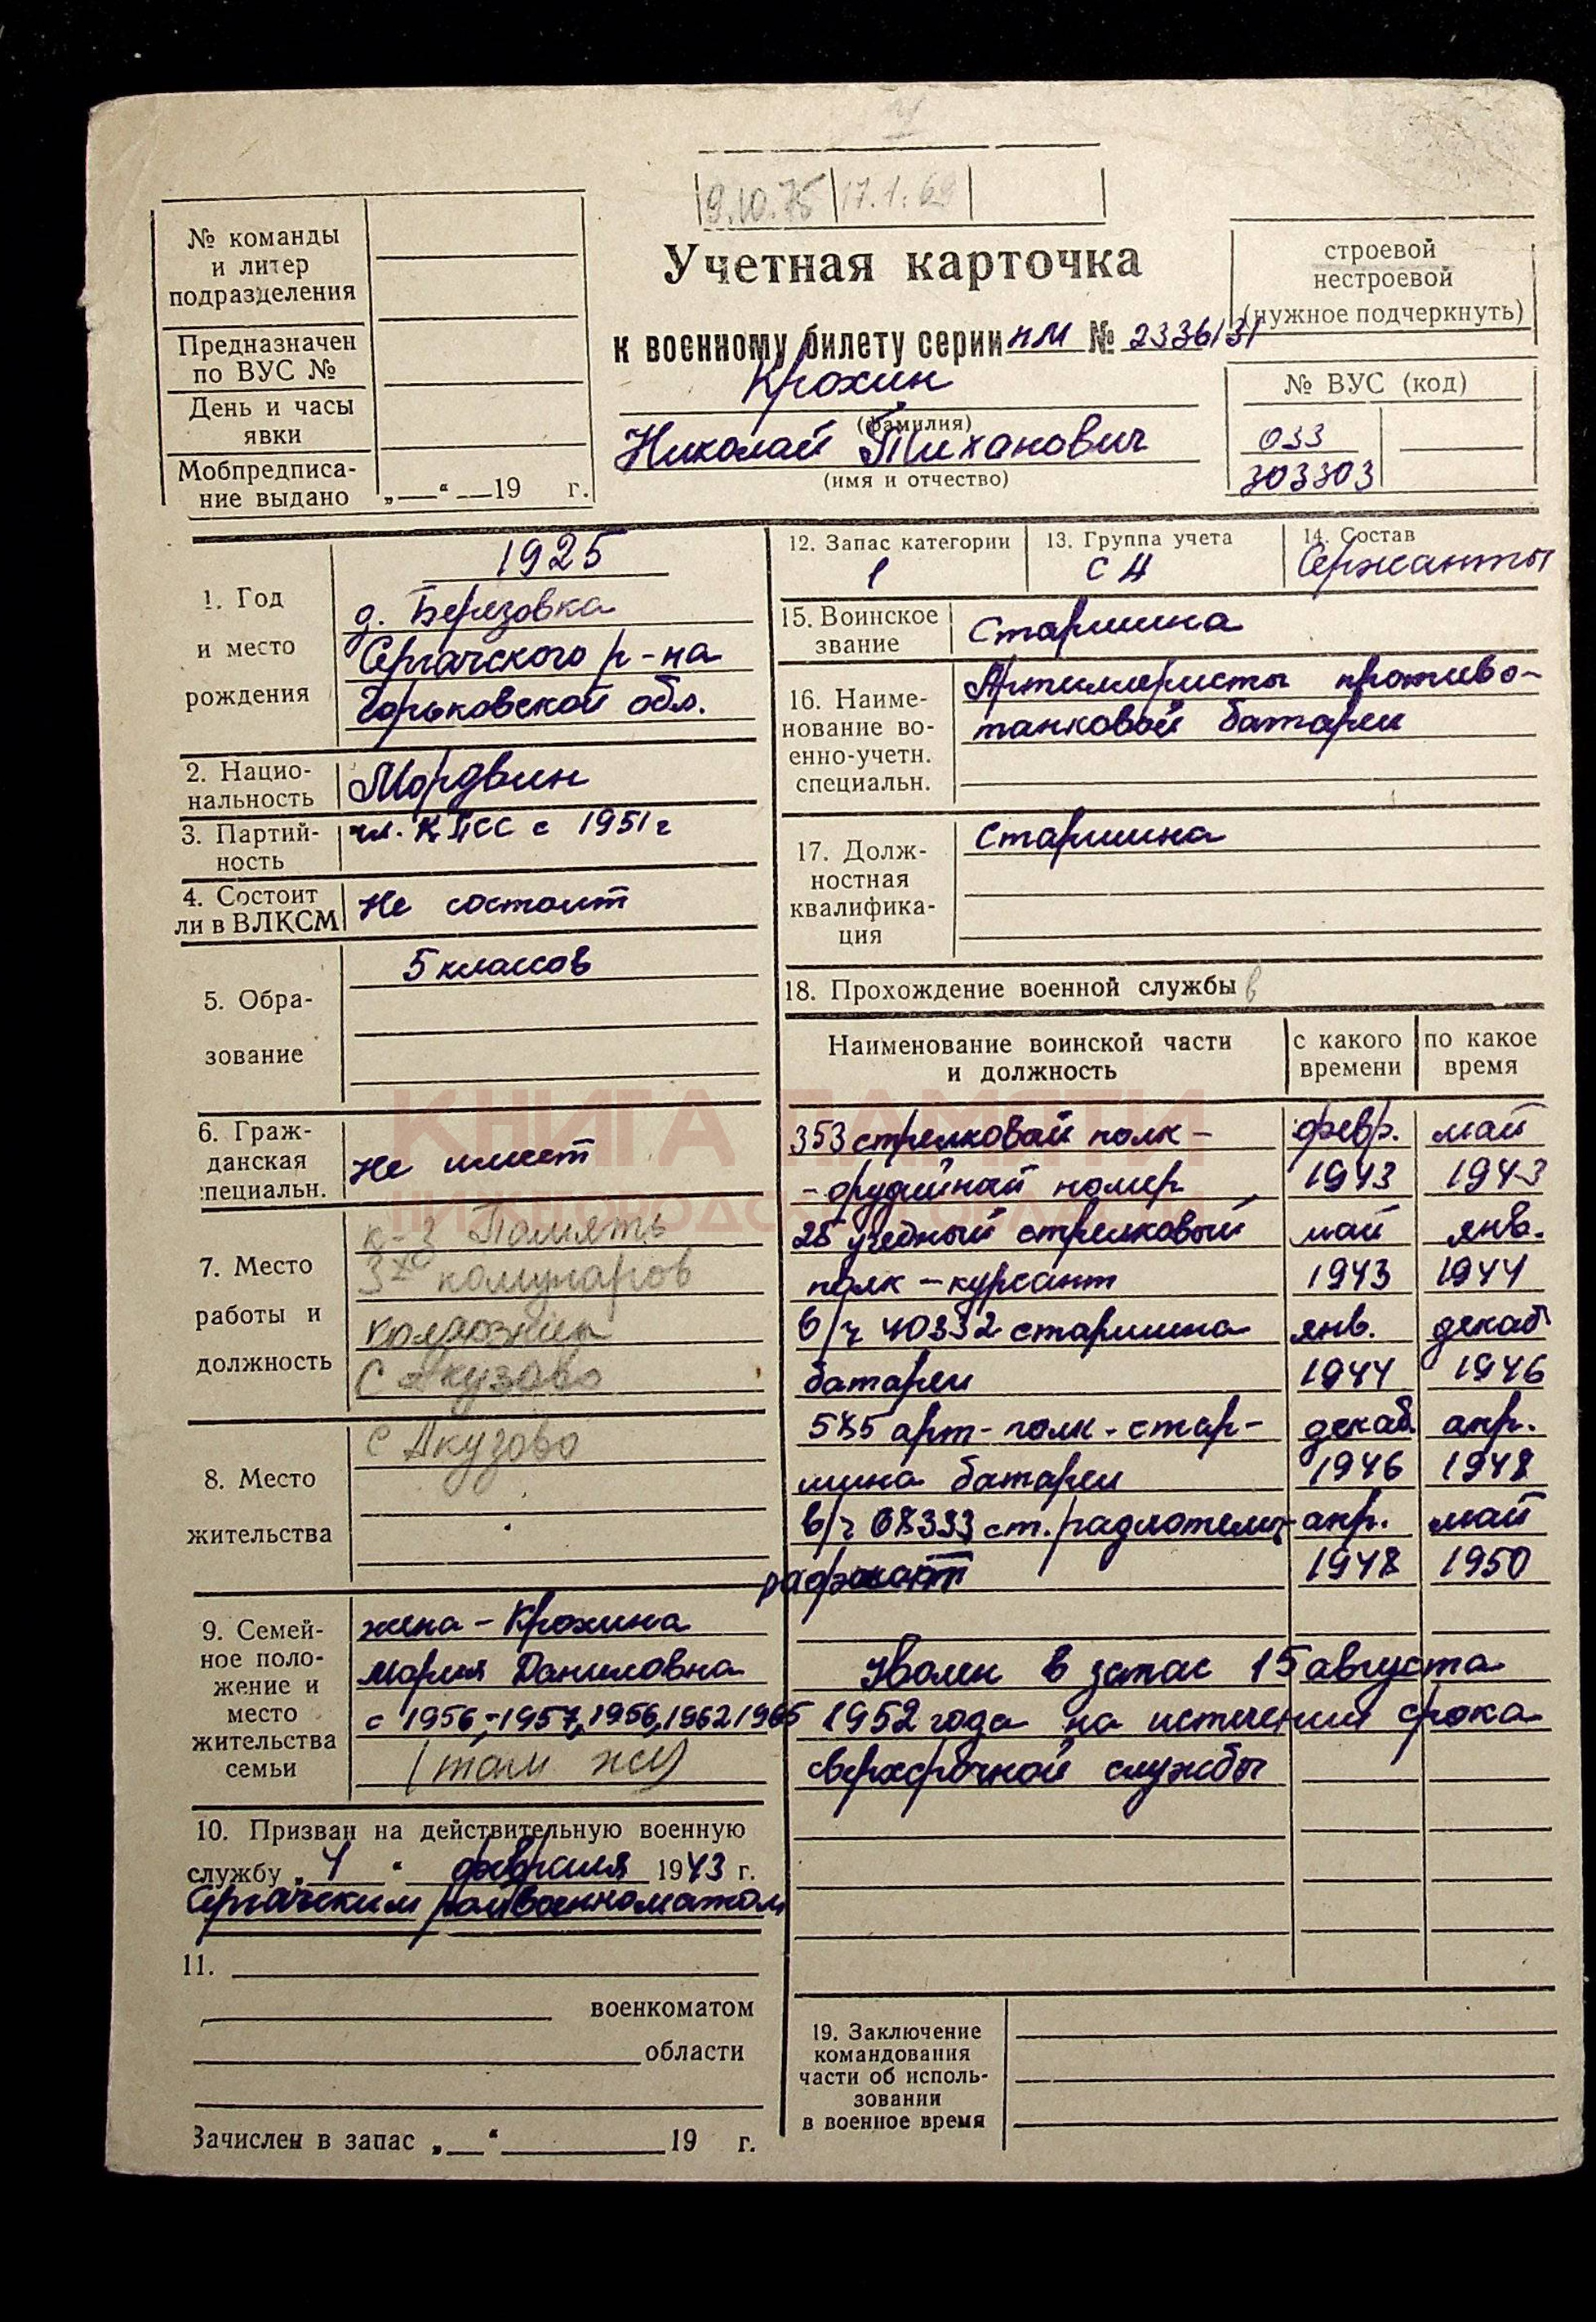 9.10.75 17.1.69
№ команды
и литер
подразделения
Предназначен
по ВУС №
День и часы
явки
Мобпредписа-
ние выдано „—“ —19 г.
Учетная карточка
к военному билету серии НМ № 2336131
Крохин
(фамилия)
Николай Тиханович
(имя и отчество)
строевой
нестроевой
(нужное подчеркнуть)
№ ВУС (код)
033
303303
1. Год
и место
рождения
1925
д. Березовка
Сергачского р-на
Горьковской обл.
2. Нацио-
нальность
Мордвин
3. Партий-
ность
чл. КПСС с 1951 г
4. Состоит
ли в ВЛКСМ
Не состоит
5. Обра-
зование
5 классов
6. Граж-
данская
специальн.
Не имеет
7. Место
работы и
должность
к-з Память
3х комунаров
колхозник
С Акузово
8. Место
жительства
С Акузово
9. Семей-
ное поло-
жение и
место
жительства
семьи
жена - Крохина
Мария Даниловна
с 1956,-1957, 1956, 1962 1965
(там же)
10. Призван на действительную военную
службу „4“ февраля 1943 г.
Сергачским райвоенкоматом
11.
военкоматом
области
Зачислен в запас „—“ 19 г.
12. Запас категории
1
13. Группа учета
СА
14. Состав
Сержанты
15. Воинское
звание
Старшина
16. Наиме-
нование во-
енно-учетн.
специальн.
Артиллеристы противо-
танковой батареи
17. Долж-
ностная
квалифика-
ция
Старшина
18. Прохождение военной службы в
Наименование воинской части
и должность
с какого
времени
по какое
время
353 стрелковый полк - февр. май
- орудийный номер 1943 1943
28 учебный стрелковый май янв.
полк - курсант 1943 1944
в/ч 40332 старшина янв. декаб
батареи 1944 1946
585 арт-полк - стар- декаб. апр.
шина батареи 1946 1948
в/ч 08333 ст. радиотелег- апр. май
рафист 1948 1950
Уволен в запас 15 августа
1952 года по истечении срока
сверхсрочной службы
19. Заключение
командования
части об исполь-
зовании
в военное время
КНИГА ПАМЯТИ
НИЖЕГОРОДСКОЙ ОБЛАСТИ